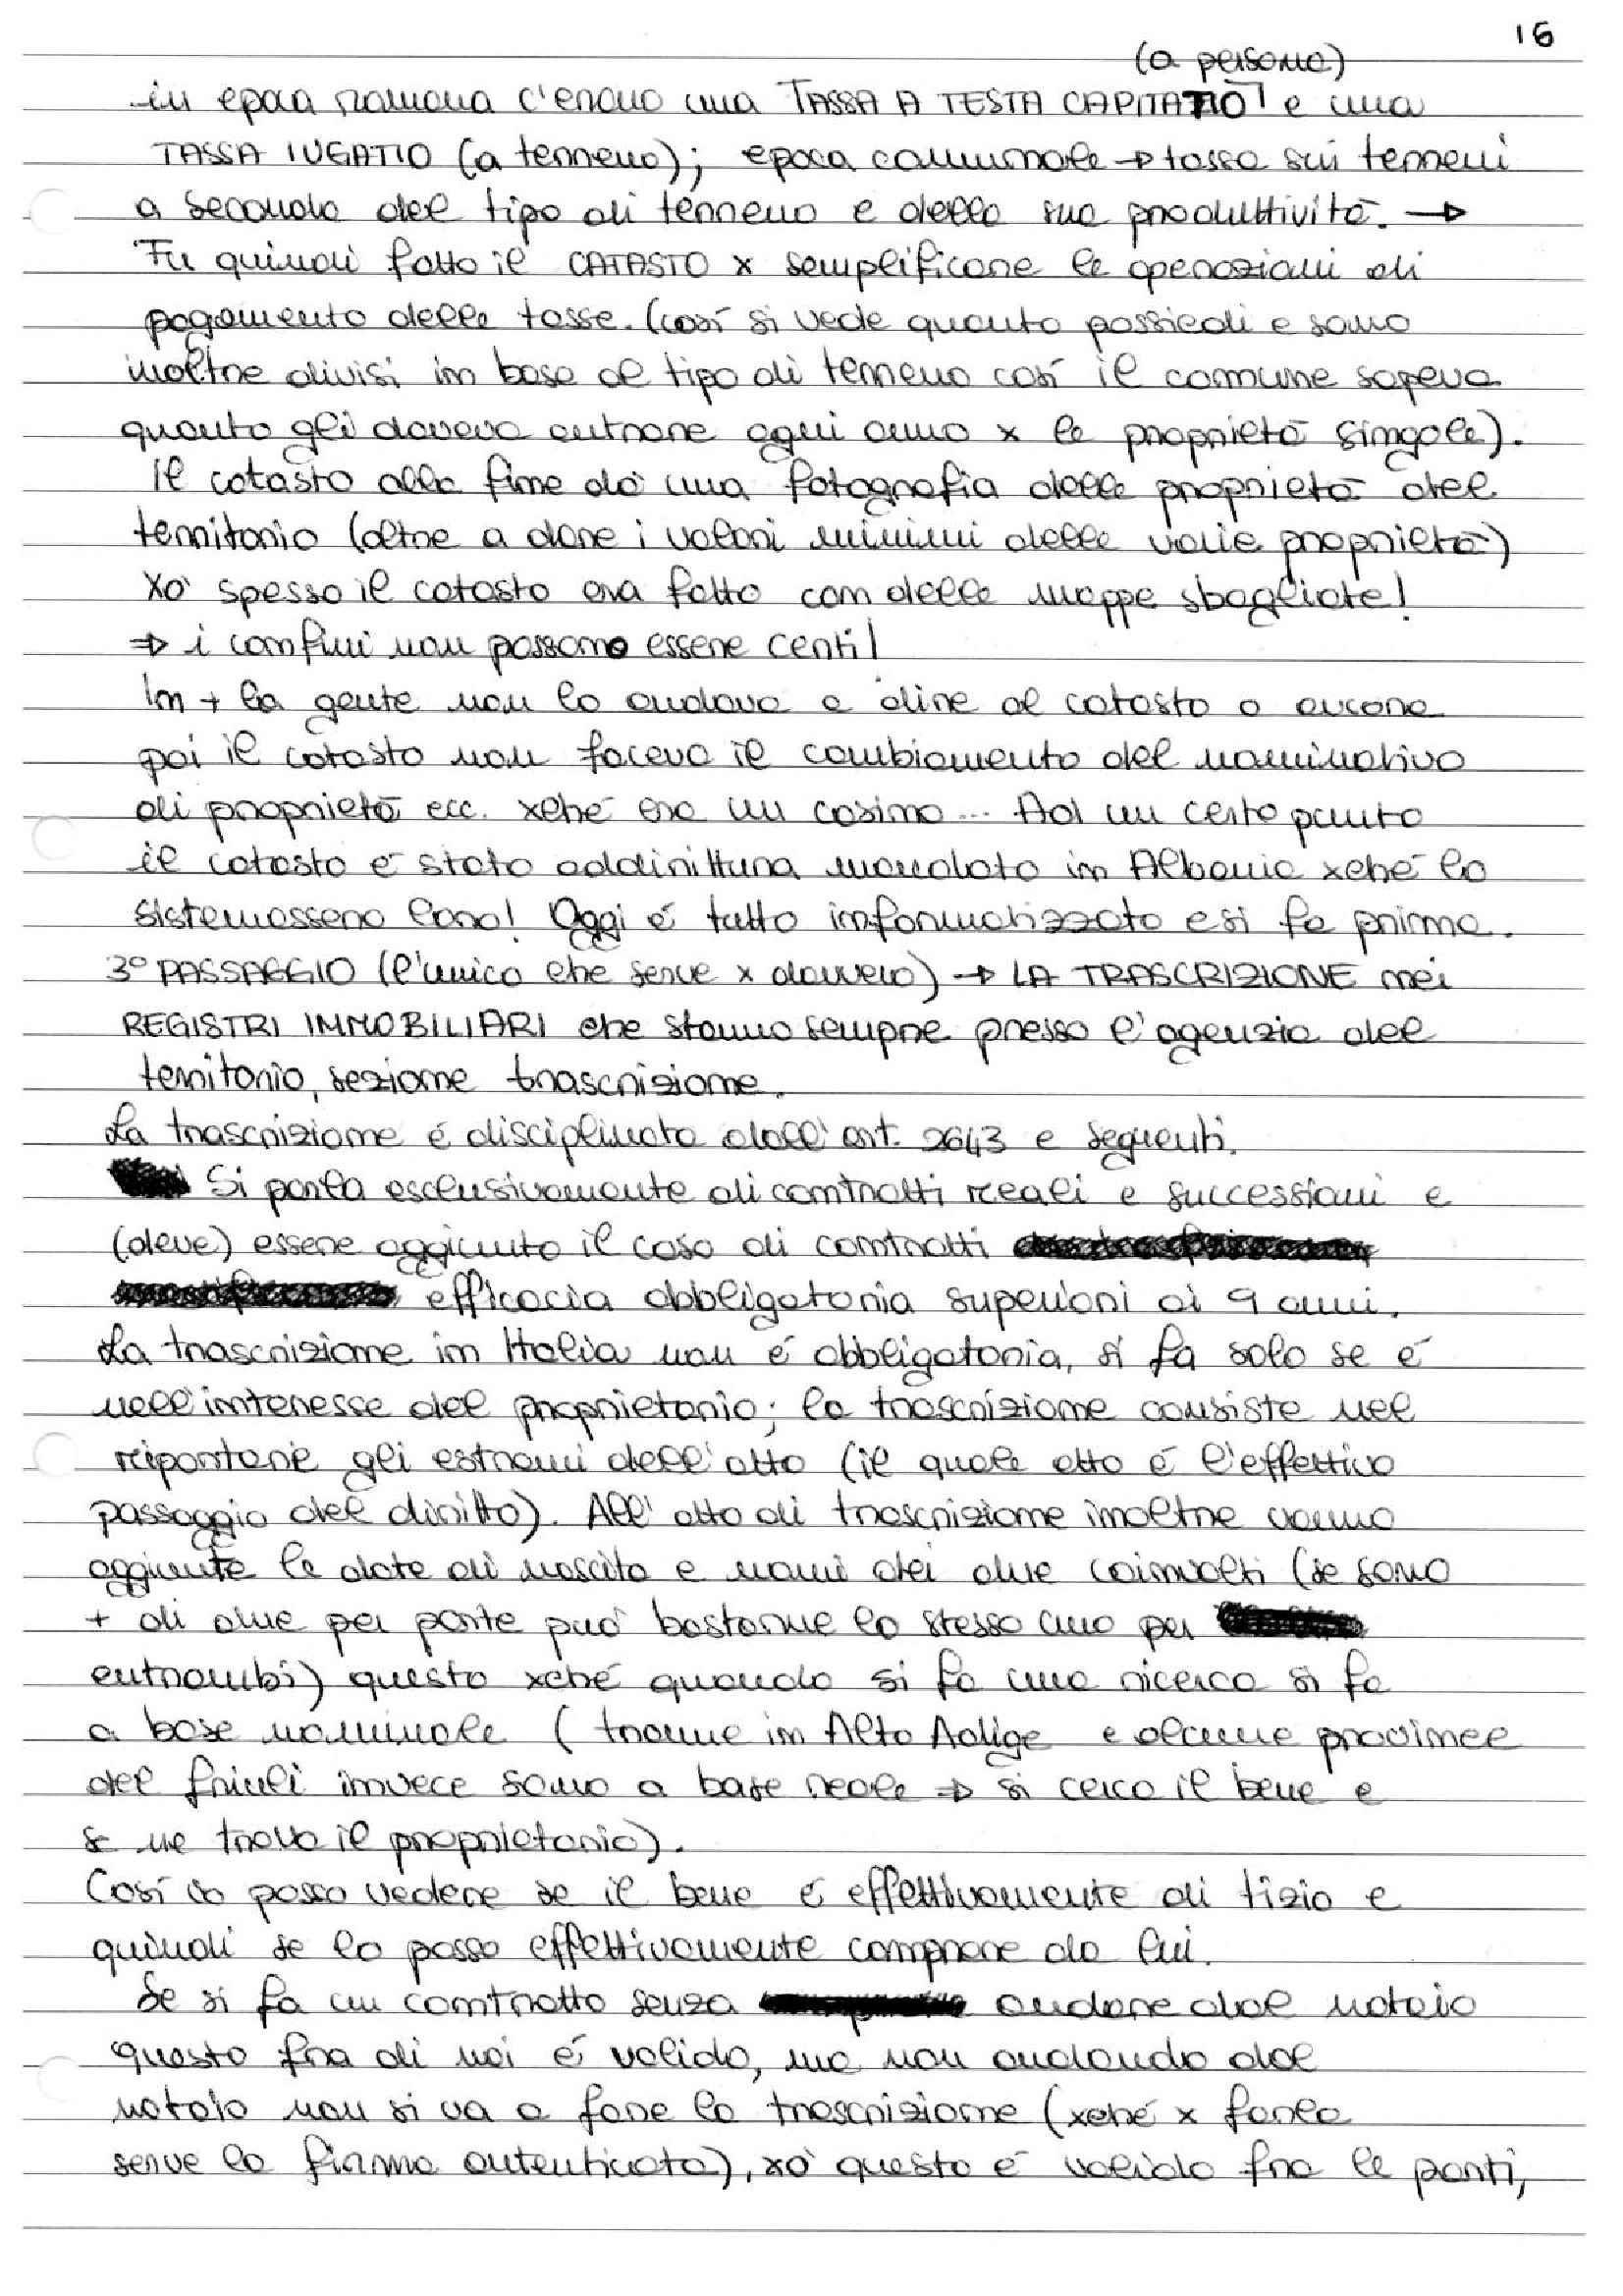 16
(a persona)
in epoca romana c'erano una TASSA A TESTA CAPITATIO e una
TASSA IUGATIO (a terreno); epoca comunale → tassa sui terreni
a seconda del tipo di terreno e della sua produttività. →
Fu quindi fatto il CATASTO x semplificare le operazioni di
pagamento delle tasse. (così si vede quanto possiedi e sono
inoltre divisi in base al tipo di terreno così il comune sapeva
quanto gli doveva entrare ogni anno x le proprietà singole).
Il catasto alla fine dà una fotografia delle proprietà del
territorio (oltre a dare i valori minimi delle varie proprietà)
Xò spesso il catasto era fatto con delle mappe sbagliate!
⇒ i confini non possono essere certi!
In + la gente non lo andava a dire al catasto o ancora
poi il catasto non faceva il cambiamento del nominativo
di proprietà ecc. xché era un casino... Ad un certo punto
il catasto è stato addirittura mandato in Albania xché lo
sistemassero loro! Oggi è tutto informatizzato e si fa prima.
3° PASSAGGIO (l'unico che serve x davvero) → LA TRASCRIZIONE nei
REGISTRI IMMOBILIARI che stanno sempre presso l'agenzia del
territorio, sezione trascrizione.
La trascrizione è disciplinata dall'art. 2643 e seguenti.
Si parla esclusivamente di contratti reali e successioni e
(deve) essere aggiunto il caso di contratti
efficacia obbligatoria superiori ai 9 anni.
La trascrizione in Italia non è obbligatoria, si fa solo se è
nell'interesse del proprietario; la trascrizione consiste nel
riportare gli estremi dell'atto (il quale atto è l'effettivo
passaggio del diritto). All'atto di trascrizione inoltre vanno
aggiunte le date di nascita e nomi dei due coinvolti (se sono
+ di due per parte può bastarne lo stesso uno per
entrambi) questo xché quando si fa una ricerca si fa
a base nominale (tranne in Alto Adige e alcune provincee
del friuli invece sono a base reale ⇒ si cerca il bene e
se ne trova il proprietario).
Così io posso vedere se il bene è effettivamente di tizio e
quindi se lo posso effettivamente comprare da lui.
Se si fa un contratto senza andare dal notaio
questo fra di noi è valido, ma non andando dal
notaio non si va a fare la trascrizione (xché x farla
serve la firma autenticata), xò questo è valido fra le parti,